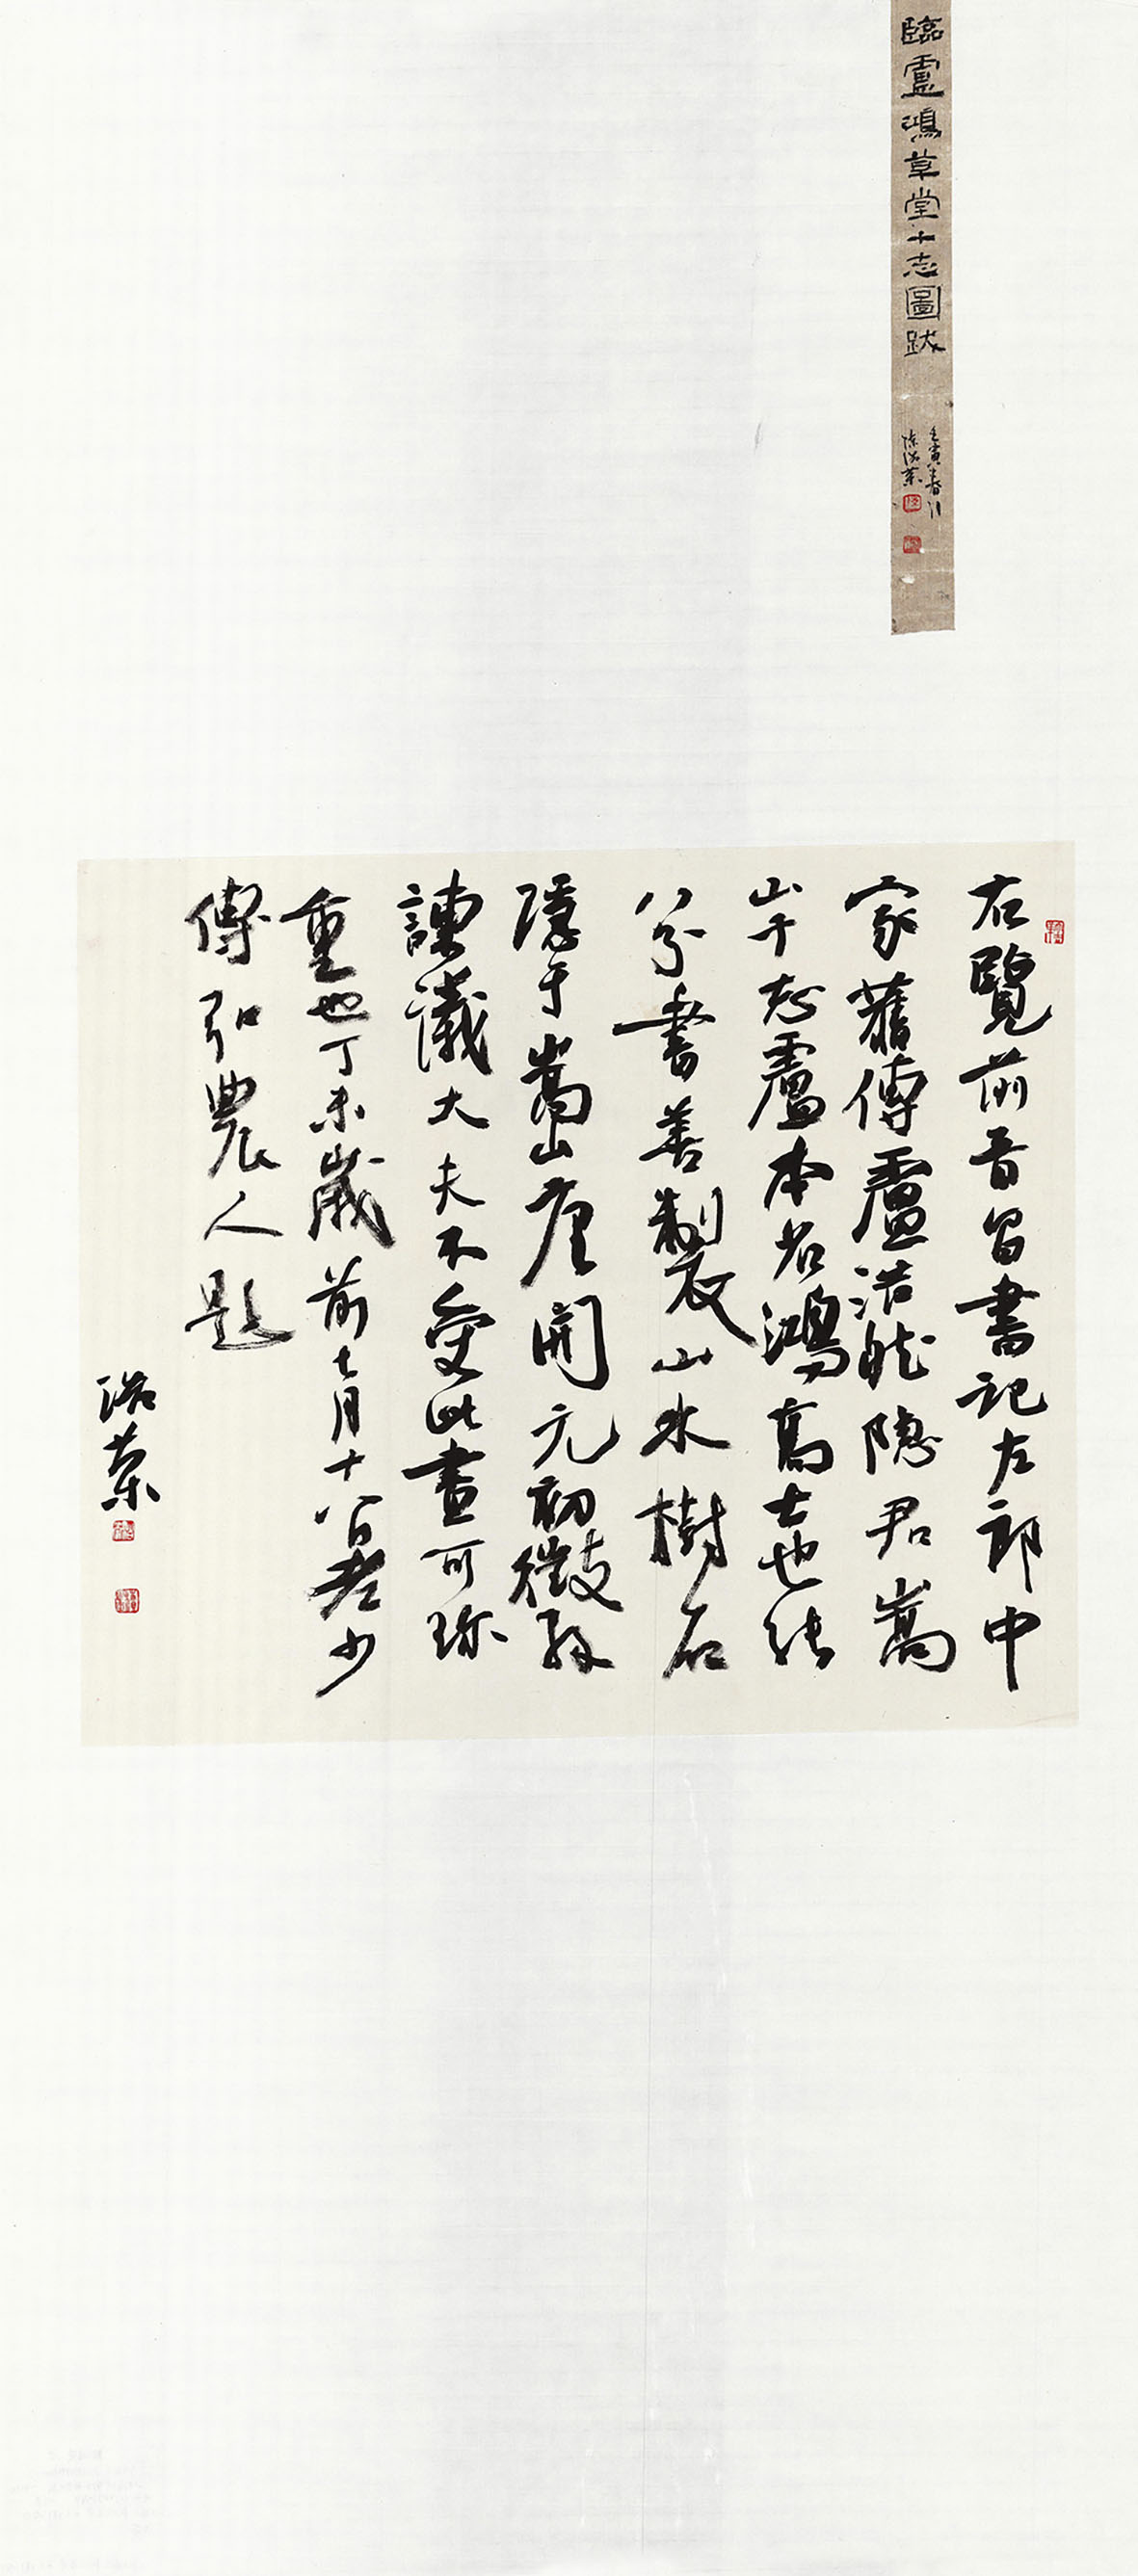 臨盧鴻草堂十志圖跋
壬寅春日
右覽前晉昌書記左郎中
家舊傳盧浩然隱君嵩
山十志盧本名鴻高士也能
八分書善製山水樹石
隱于嵩山唐開元初徵拜
諫議大夫不受此畫可珍
重也丁未歲前七月十八日老少
傅弘農人題